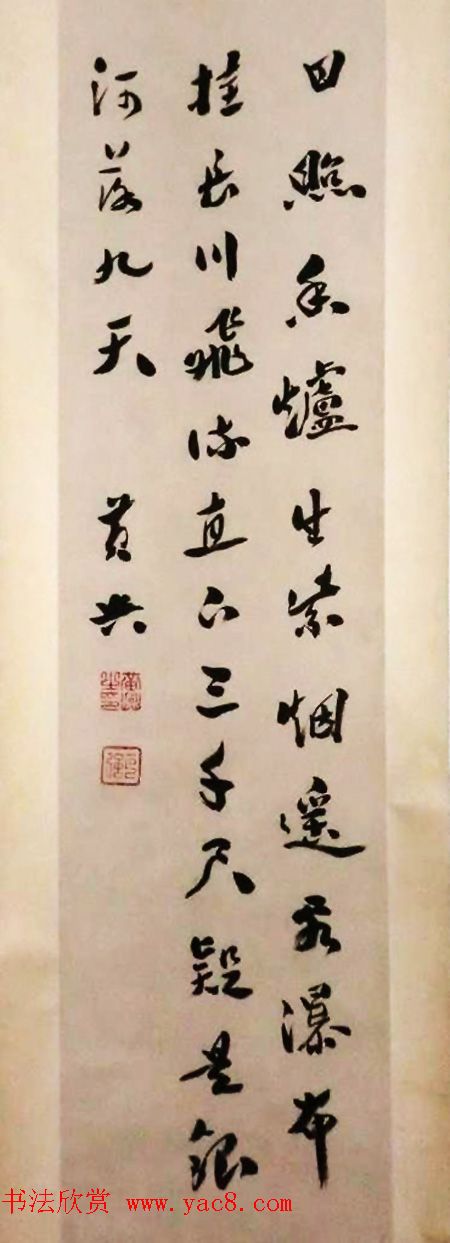 日照香爐生紫烟遥看瀑布
挂長川飛流直下三千尺疑是銀
河落九天 黄兴
书法欣赏 www.yac8.com